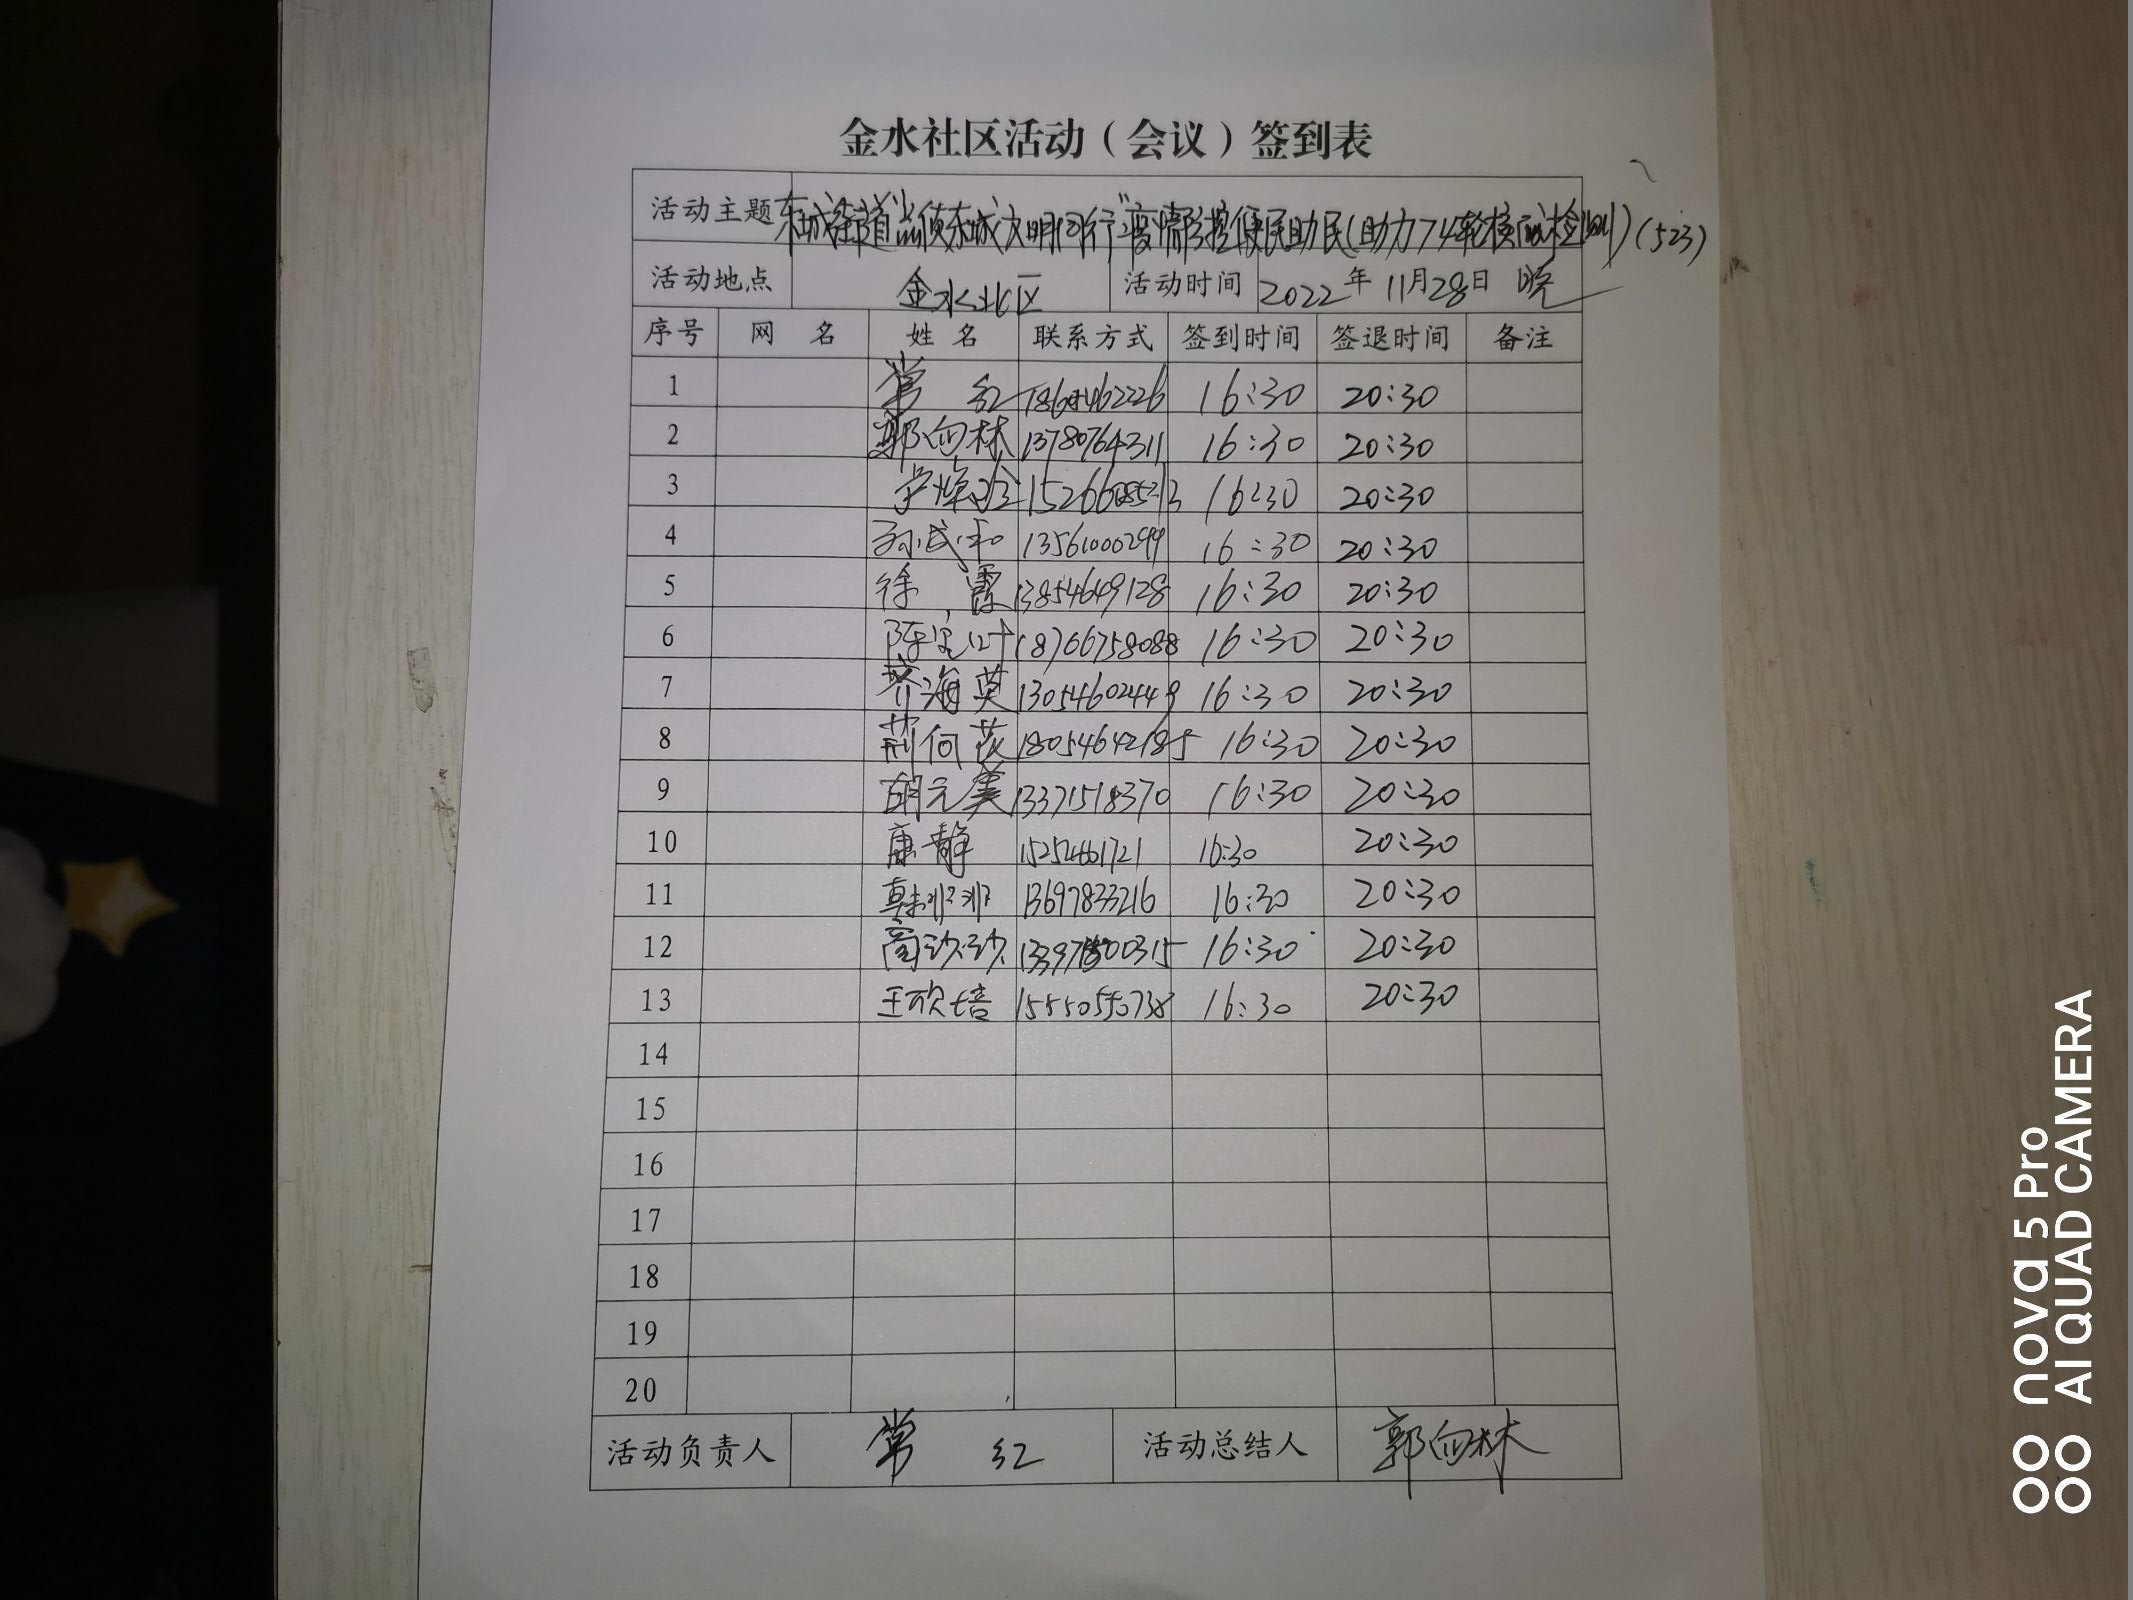 金水社区活动（会议）签到表
活动主题 东城街道"尚德东城文明同行"疫情防控便民助民(助力74轮核酸检测)(523)
活动地点 金水北区 活动时间 2022年11月28日 晚
序号 网名 姓名 联系方式 签到时间 签退时间 备注
1 常红 16:30 20:30
2 郭向林 13780764311 16:30 20:30
3 16:30 20:30
4 13561000299 16:30 20:30
5 徐霞 13854649128 16:30 20:30
6 18766758088 16:30 20:30
7 齐海英 13054602449 16:30 20:30
8 18054642185 16:30 20:30
9 胡元美 13371518370 16:30 20:30
10 康静 15254661721 16:30 20:30
11 韩非非 13697833216 16:30 20:30
12 商沙沙 16:30 20:30
13 王欣培 15550550738 16:30 20:30
14
15
16
17
18
19
20
活动负责人 常红 活动总结人 郭向林
nova 5 Pro
AI QUAD CAMERA